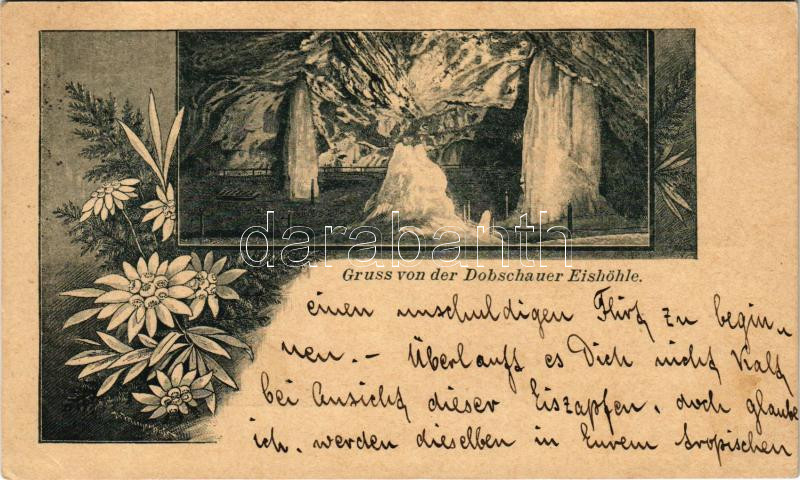 darabanth
Gruss von der Dobschauer Eishöhle.
einen unschuldigen Flirt zu begin-
nen. – Überlauft es Dich nicht kalt
bei Ansicht dieser Eiszapfen, doch glaube
ich, werden dieselben in Eurem tropischen